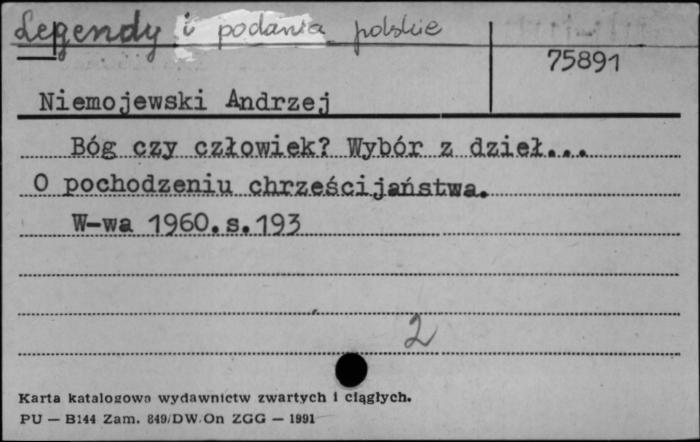 Legendy i podania polskie
75891
Niemojewski Andrzej
Bóg czy człowiek? Wybór z dzieł...
O pochodzeniu chrześcijaństwa.
W-wa 1960.s.193
2
Karta katalogowa wydawnictw zwartych i ciągłych.
PU — B144 Zam. 849/DW.On ZGG — 1991